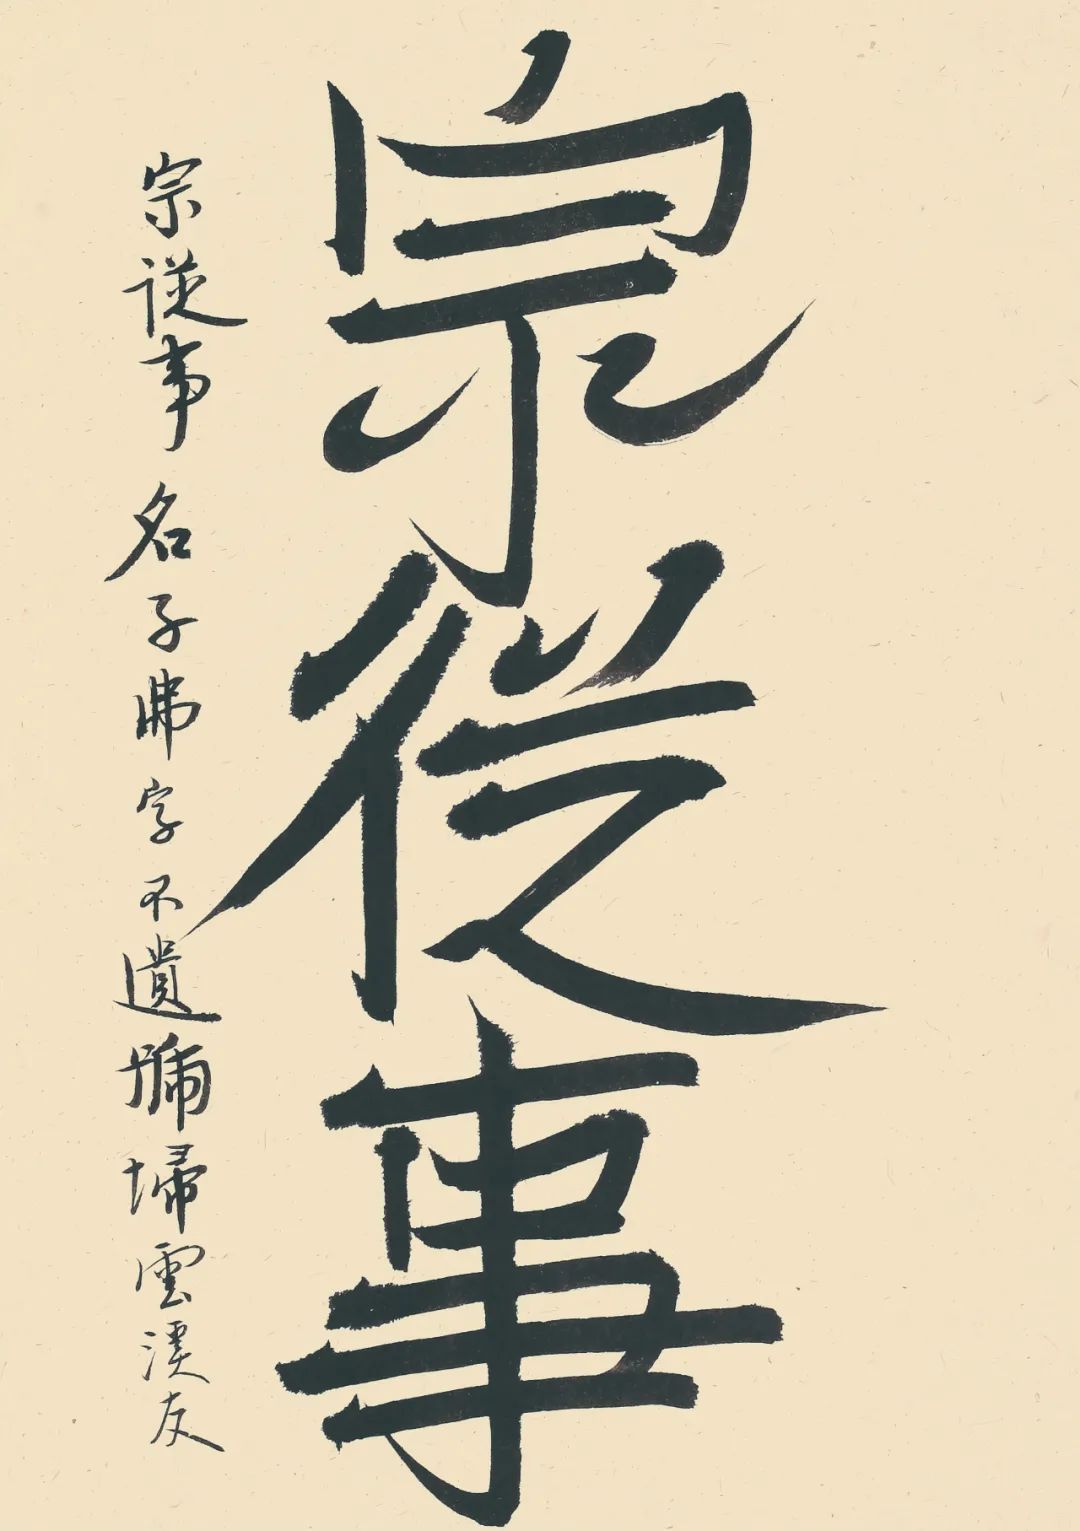 宗從事
宗從事 名子 字不遺號埽雲溪友